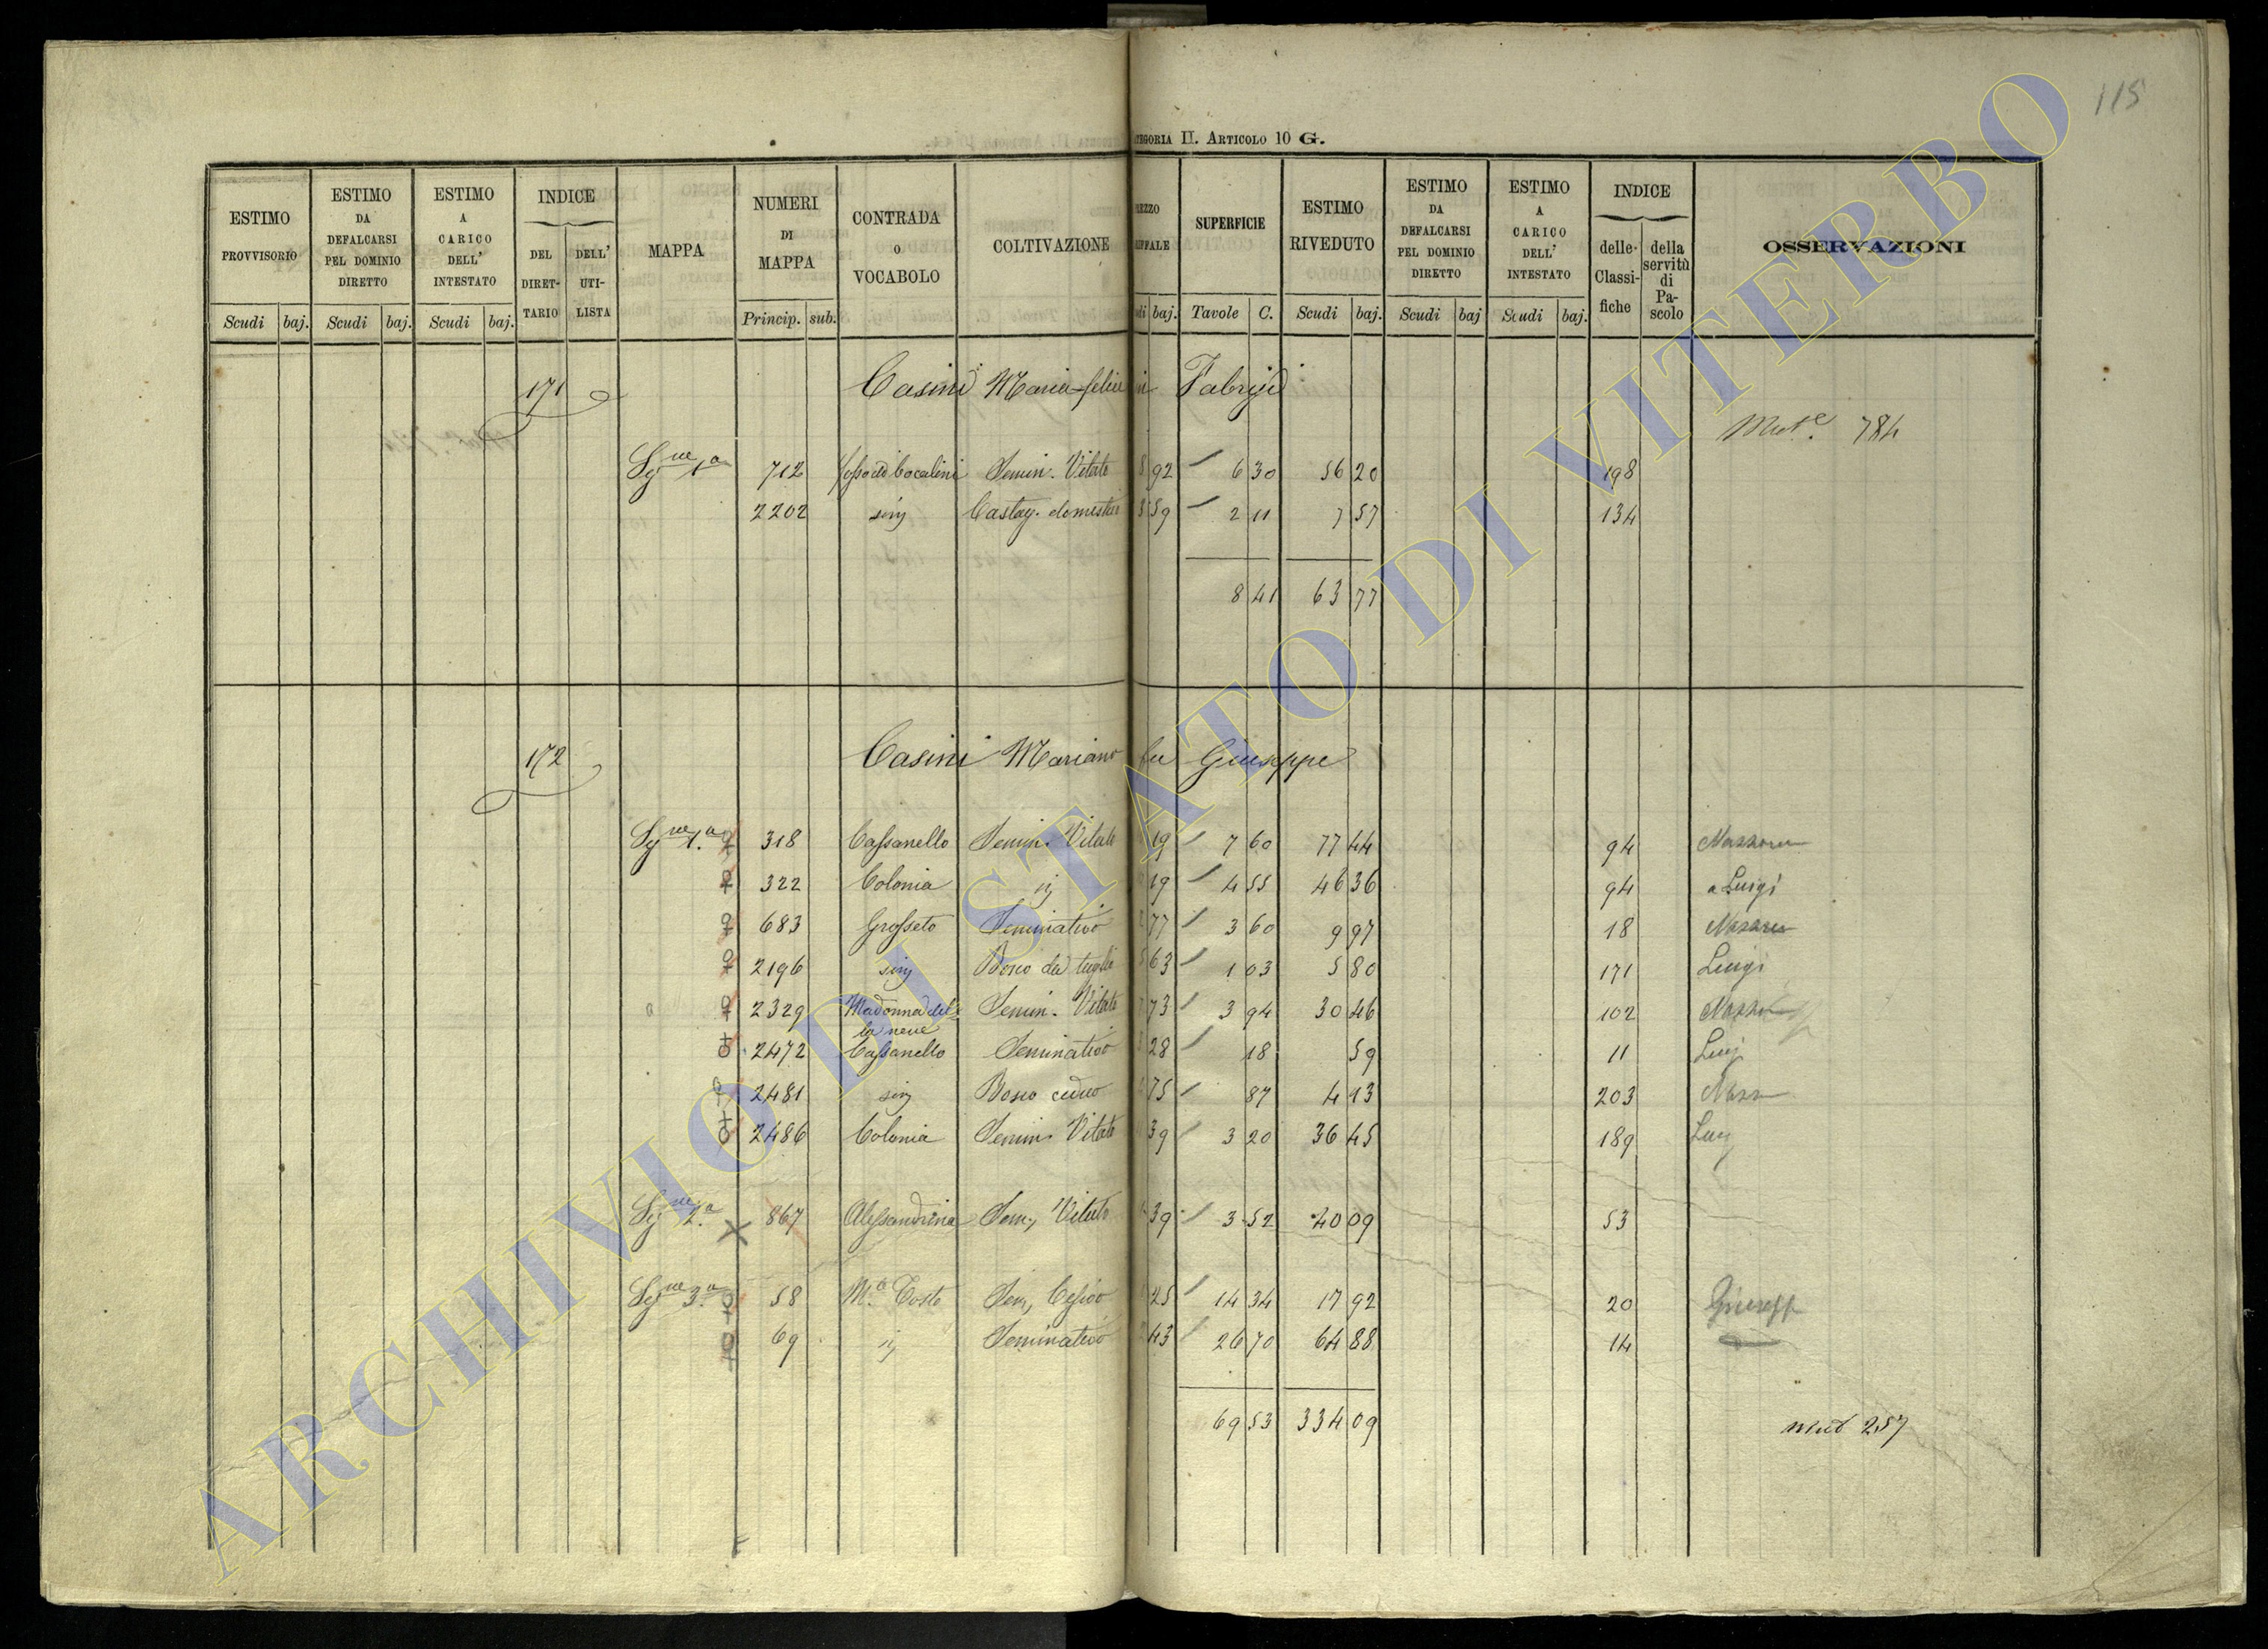 115
CATEGORIA II. ARTICOLO 10 G.
ESTIMO PROVVISORIO Scudi baj.
ESTIMO DA DEFALCARSI PEL DOMINIO DIRETTO Scudi baj.
ESTIMO A CARICO DELL' INTESTATO Scudi baj.
INDICE DEL DIRETTARIO DELL' UTILISTA
MAPPA
NUMERI DI MAPPA Princip. sub.
CONTRADA O VOCABOLO
COLTIVAZIONE
baj.
SUPERFICIE Tavole C.
ESTIMO RIVEDUTO Scudi baj.
ESTIMO DA DEFALCARSI PEL DOMINIO DIRETTO Scudi baj
ESTIMO A CARICO DELL' INTESTATO Scudi baj.
INDICE delle Classifiche della servitù di Pascolo
OSSERVAZIONI
171 Casini Maria felice in Fabrizi
Mut.e 784
712 Semin. Vitato 92 6 30 56 20 198
2202 sinj Castag. domestico 59 2 11 7 57 134
8 41 63 77
172 Casini Mariano fu Giuseppe
318 Cassanello Semin. Vitato 19 7 60 77 44 94
322 Colonia ij 19 4 55 46 36 94 a Luigi
683 Grosseto Seminativo 77 3 60 9 97 18
2196 sinj Bosco da taglio 63 1 03 5 80 171 Luigi
2329 Madonna della neve Semin. Vitato 73 3 94 30 46 102
2472 Cassanello Seminativo 28 18 59 11 Luigi
2481 sinj Bosco ceduo 75 87 4 13 203
2486 Colonia Semin. Vitato 39 3 20 36 45 189
867 Alessandrina Sem. Vitato 39 3 52 40 09 53
58 M.a Tosto Sem. 25 14 34 17 92 20 Giusepp
69 ij Seminativo 43 26 70 64 88 14
69 53 334 09
Mut 257
ARCHIVIO DI STATO DI VITERBO